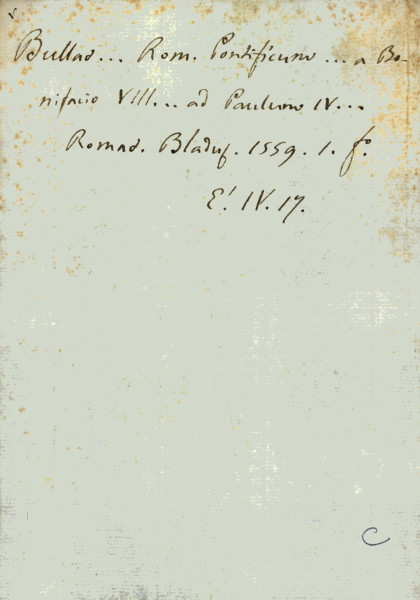 Bullae... Rom. Pontificum... a Bo-
nifacio VIII... ad Paulum IV...
Romae. Bladus. 1559. 1. fº.
E! IV. 17.
C